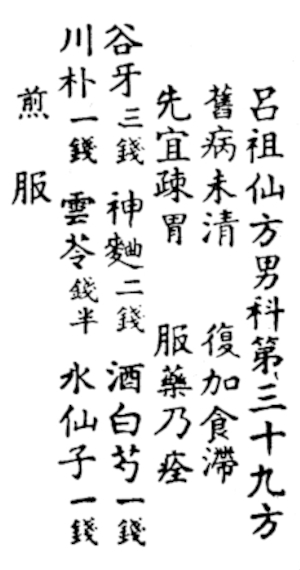 呂祖仙方男科第三十九方
舊病未清 復加食滯
先宜疎胃 服藥乃痊
谷牙三錢 神麯二錢 酒白芍一錢
川朴一錢 雲苓錢半 水仙子一錢
煎服